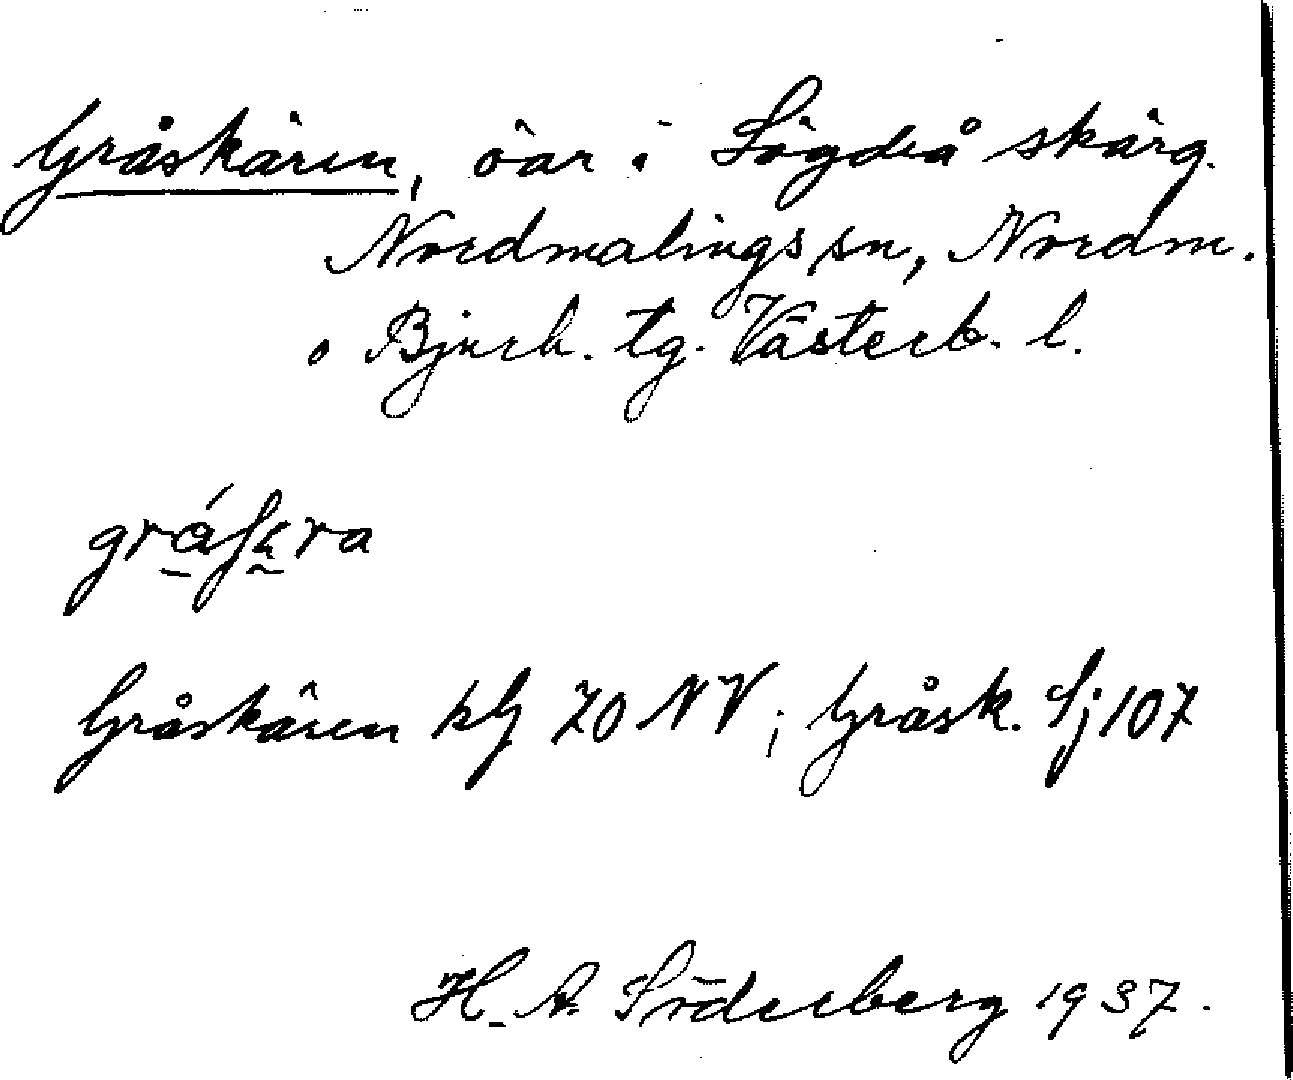 Gråskären, öar i Lögdeå skärg.
Nordmalings sn, Nordm.
o Bjurh. tg. Västerb. l.
gråskra
Gråskären kG 70 NV; Gråsk. Sj 107
H. A. Söderberg 1937.